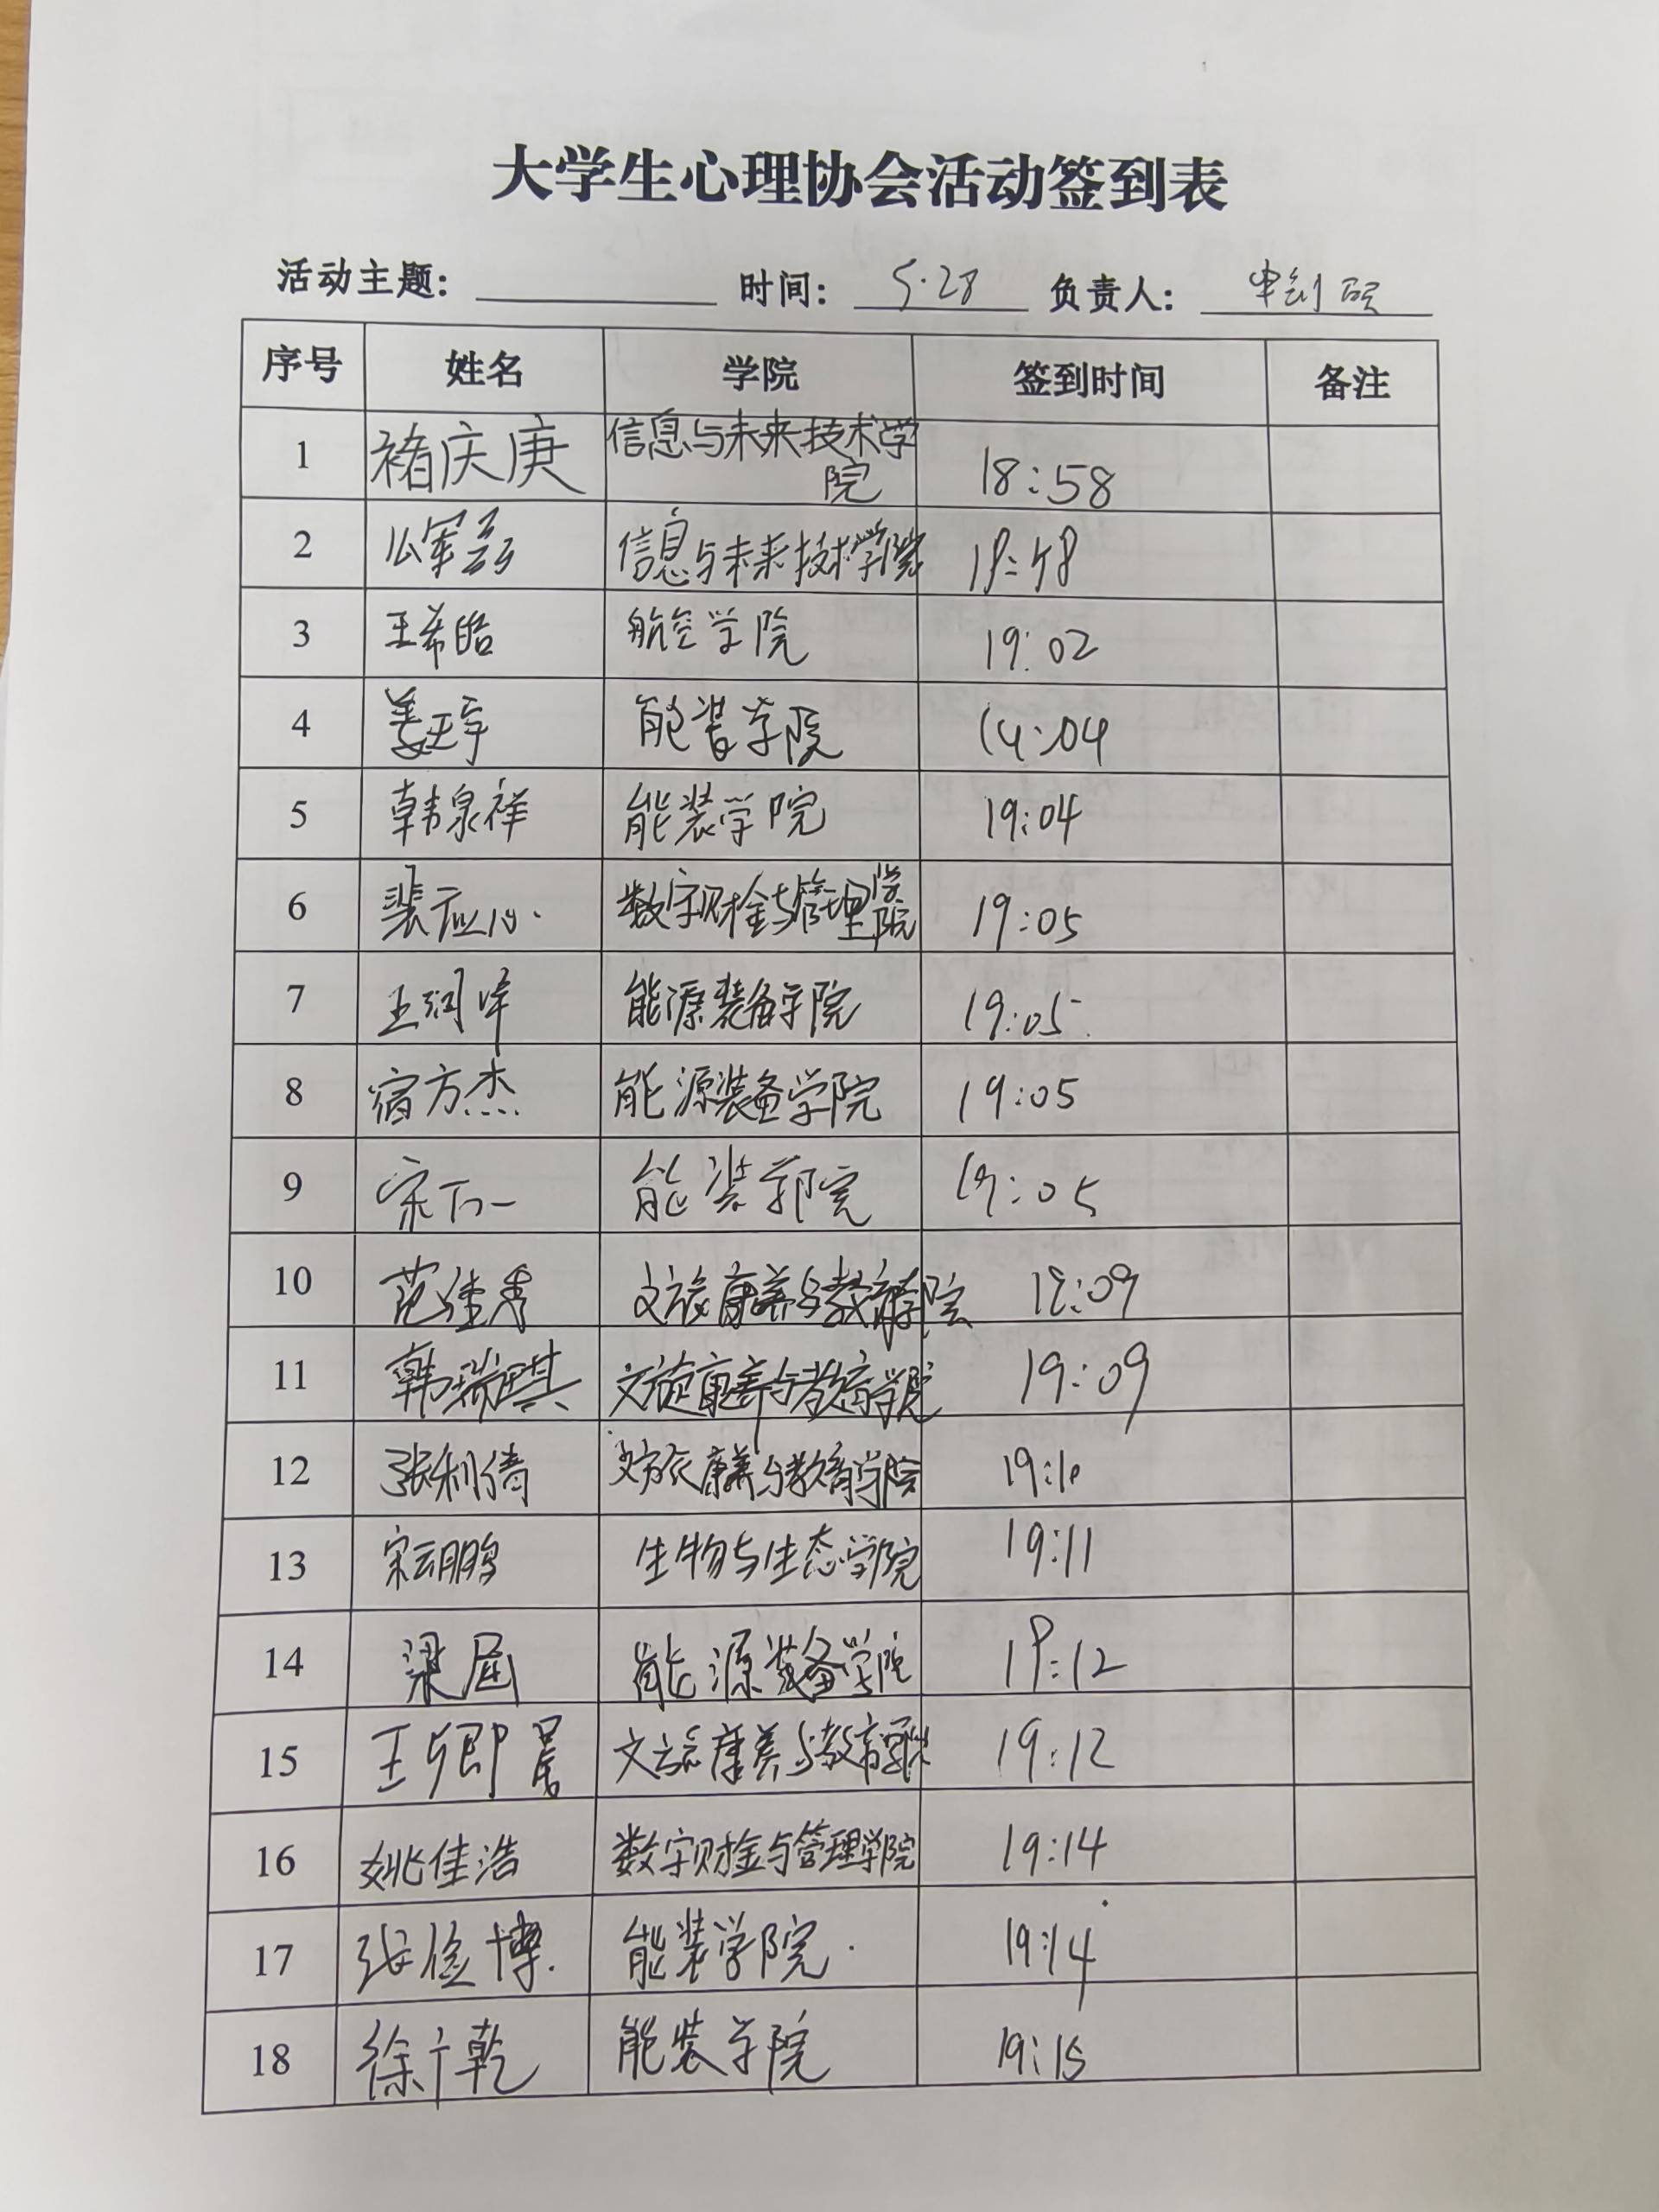 大学生心理协会活动签到表
活动主题: 时间: 5.28 负责人:
序号 姓名 学院 签到时间 备注
1 褚庆庚 信息与未来技术学院 18:58
2 信息与未来技术学院 18:58
3 王希皓 航空学院 19:02
4 姜玉宇 能装学院 19:04
5 韩泉祥 能装学院 19:04
6 裴应心 数字财金与管理学院 19:05
7 王润峰 能源装备学院 19:05
8 宿方杰 能源装备学院 19:05
9 能装学院 19:05
10 范佳秀 文旅康养与教育学院 19:09
11 韩瑞琪 文旅康养与教育学院 19:09
12 张利倩 文旅康养与教育学院 19:10
13 宋云鹏 生物与生态学院 19:11
14 梁 能源装备学院 19:12
15 王卿 文旅康养与教育学院 19:12
16 姚佳浩 数字财金与管理学院 19:14
17 张俭博. 能装学院. 19:14
18 徐广乾 能装学院 19:15